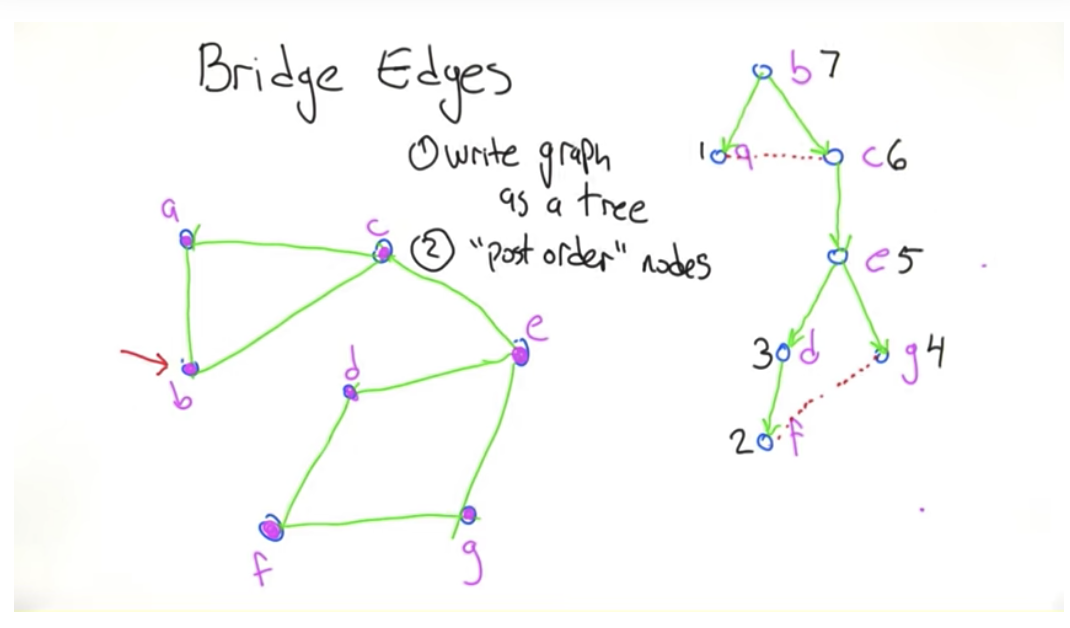 Bridge Edges
① write graph
as a tree
② "post order" nodes
a
c
b
d
e
f
g
b 7
1 a
c 6
e 5
3 d
g 4
2 f